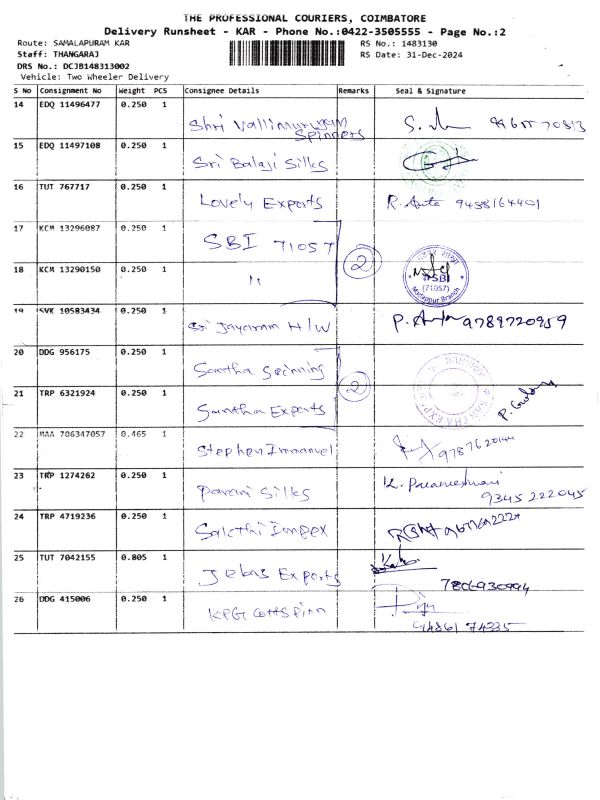 THE PROFESSIONAL COURIERS, COIMBATORE
Delivery Runsheet - KAR - Phone No.:0422-3505555 - Page No.:2
Route: SAMALAPURAM KAR RS No.: 1483130
Staff: THANGARAJ RS Date: 31-Dec-2024
DRS No.: DCJB148313002
Vehicle: Two Wheeler Delivery
S No Consignment No Weight PCS Consignee Details Remarks Seal & Signature
14 EDQ 11496477 0.250 1 Shri Vallimurugan
Spinners
15 EDQ 11497108 0.250 1 Sri Balaji Silks
16 TUT 767717 0.250 1 Lovely Exports R. Anta 9488164401
17 KCM 13296087 0.250 1 SBI 71057
18 KCM 13290150 0.250 1 " 2 SBI (71057)
19 SVK 10583434 0.250 1 Sri Jayaram H/W 9789720959
20 DDG 956175 0.250 1 Santha Spinning
21 TRP 6321924 0.250 1 Santha Exports 2
22 MAA 706347057 0.465 1 Stephen Immanuel
23 TRP 1274262 0.250 1 Parani Silks K. Parameshwari
9345 222045
24 TRP 4719236 0.250 1 Sakthi Impex
25 TUT 7042155 0.805 1 Jebas Exports
7806930994
26 DDG 415006 0.250 1 KPG Cottspinn
94861 74335